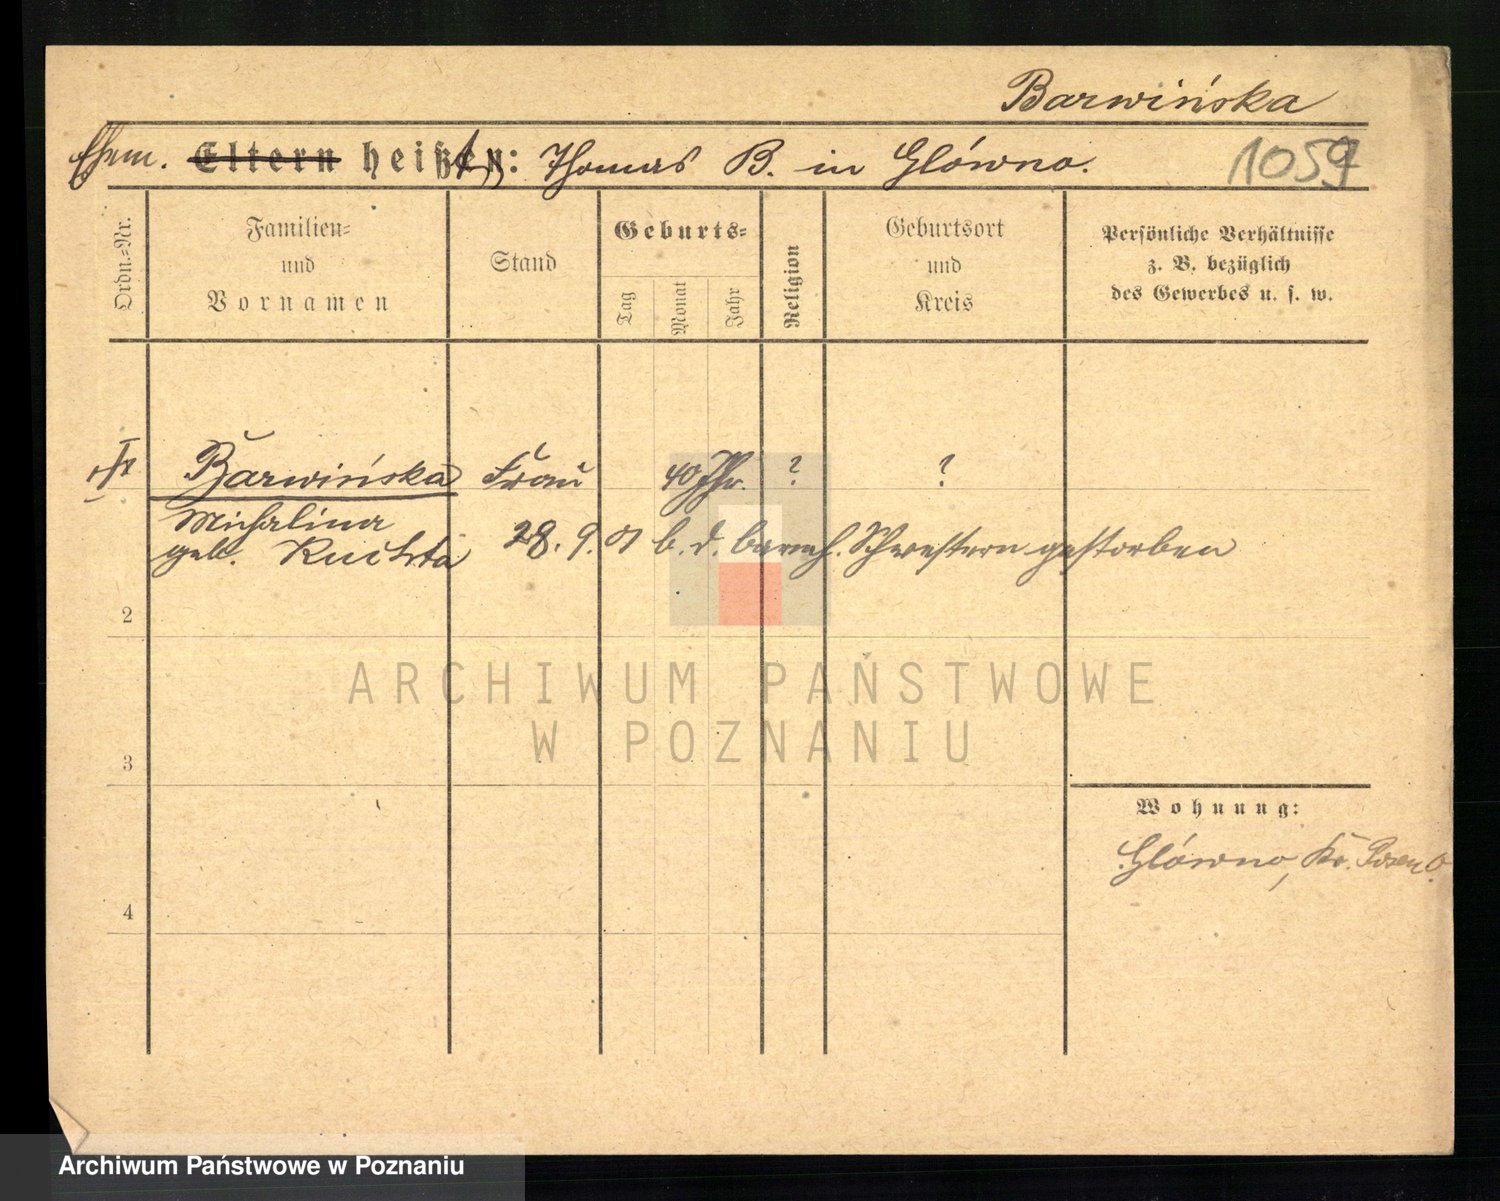 Barwińska
Ehem. Eltern heißt: Thomas B. in Główno.
1059
Ordn.-Nr.
Familien-
und
Vornamen
Stand
Geburts-
Tag
Monat
Jahr
Religion
Geburtsort
und
Kreis
Persönliche Verhältnisse
z. B. bezüglich
des Gewerbes u. s. w.
Barwińska Frau 40 Jhr. ? ?
Michalina
geb. Kuchta 28. 9. 01 b. d. barmh. Schwestern gestorben
2
3
4
Wohnung:
Główno, Kr. Posen O.
ARCHIWUM PAŃSTWOWE
W POZNANIU
Archiwum Państwowe w Poznaniu